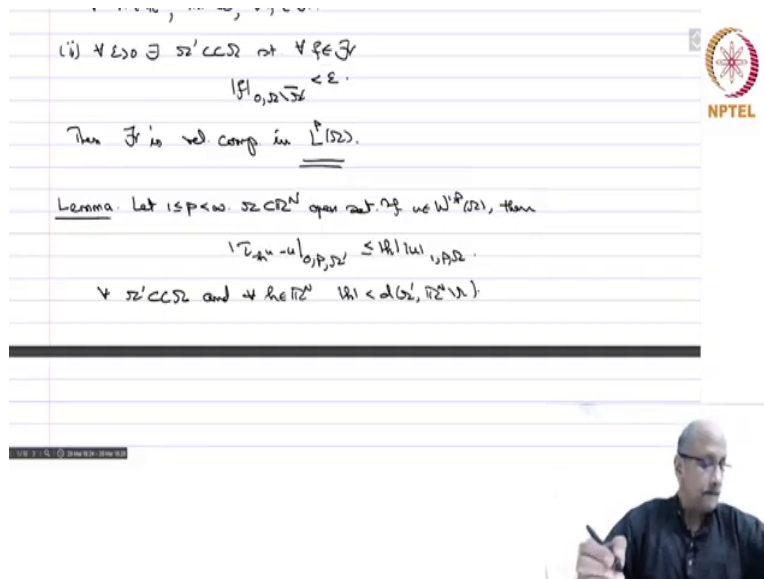 (ii) ∀ ε>0 ∃ Ω'⊂⊂Ω st ∀ f∈ℱ
|f|_{0,Ω\Ω̄'} < ε.
Then ℱ is rel. comp in L^p(Ω).
Lemma. Let 1≤p<∞. Ω⊂ℝ^N open set. If u∈W^{1,p}(Ω), then
|τ_{-h}u - u|_{0,p,Ω'} ≤ |h| |u|_{1,p,Ω}.
∀ Ω'⊂⊂Ω and ∀ h∈ℝ^N |h| < d(Ω', ℝ^N\Ω).
NPTEL